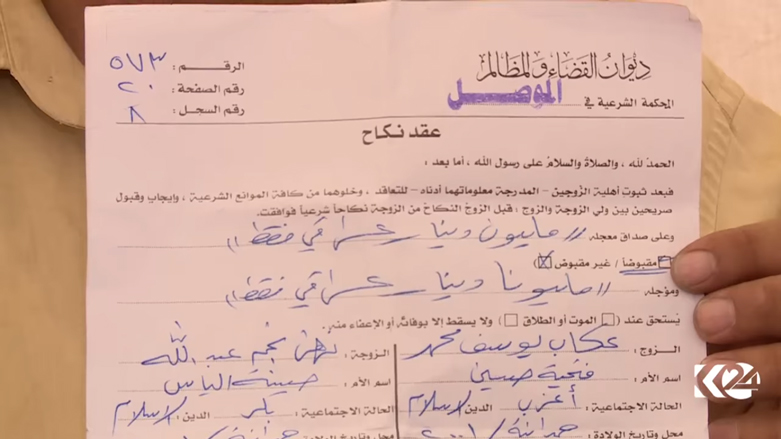 ديوان القضاء والمظالم
المحكمة الشرعية في الموصل
الرقم : ٥٧٣
رقم الصفحة : ٢٠
رقم السجل : ٨
عقد نكاح
الحمد لله ، والصلاة والسلام على رسول الله ، أما بعد :
فبعد ثبوت أهلية الزوجين - المدرجة معلوماتهما أدناه - للتعاقد ، وخلوهما من كافة الموانع الشرعية ، وإيجاب وقبول
صريحين بين ولي الزوجة والزوج : قبل الزوج النكاح من الزوجة نكاحاً شرعياً فوافقت.
وعلى صداق معجله // مليون دينار عراقي فقط //
مقبوضاً / غير مقبوض (X)
ومؤجله // مليونا دينار عراقي فقط //
يُستحق عند ( الموت أو الطلاق ) ولا يسقط إلا بوفائه أو الإعفاء منه.
الزوج : عكاب يوسف محمد
الزوجة : نجم عبد الله
اسم الأم : فتحية حسين
اسم الأم : الياس
الحالة الاجتماعية : أعزب الدين: الاسلام
الحالة الاجتماعية : بكر الدين: الاسلام
محل وتاريخ الولادة : حمدانية / ٢٠٠١
محل وتاريخ الولادة
K24